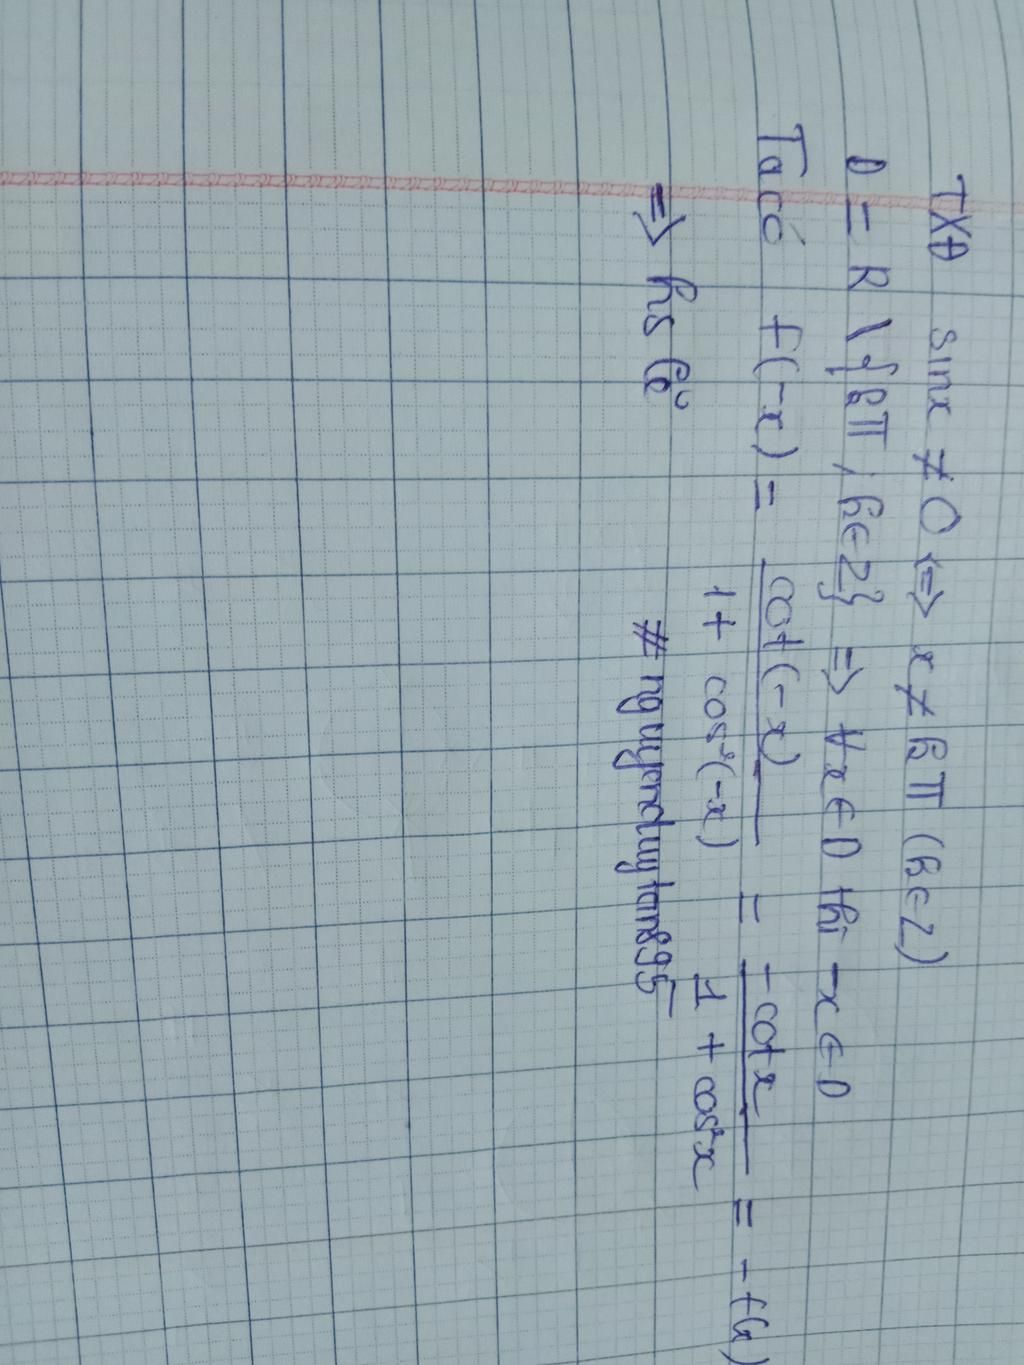 TXĐ sinx ≠ 0 <=> x ≠ kπ (k∈Z)
D = R \ {kπ, k∈Z} => ∀x∈D thì -x∈D
Ta có f(-x) = cot(-x) / 1 + cos²(-x) = -cotx / 1 + cos²x = -f(x)
=> hs lẻ
# nguyenduytan895